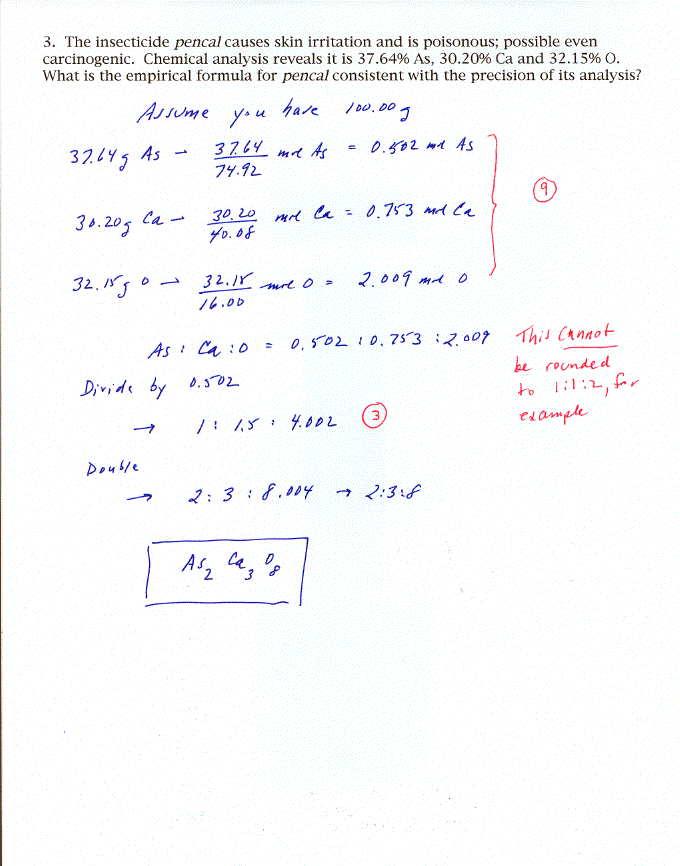 3. The insecticide pencal causes skin irritation and is poisonous; possible even
carcinogenic. Chemical analysis reveals it is 37.64% As, 30.20% Ca and 32.15% O.
What is the empirical formula for pencal consistent with the precision of its analysis?
Assume you have 100.00 g
37.64 g As → 37.64/74.92 mol As = 0.502 mol As
⑨
30.20 g Ca → 30.20/40.08 mol Ca = 0.753 mol Ca
32.15 g O → 32.15/16.00 mol O = 2.009 mol O
As : Ca : O = 0.502 : 0.753 : 2.009
This cannot
be rounded
to 1:1:2, for
example
Divide by 0.502
→ 1 : 1.5 : 4.002 ③
Double
→ 2 : 3 : 8.004 → 2:3:8
As₂ Ca₃ O₈